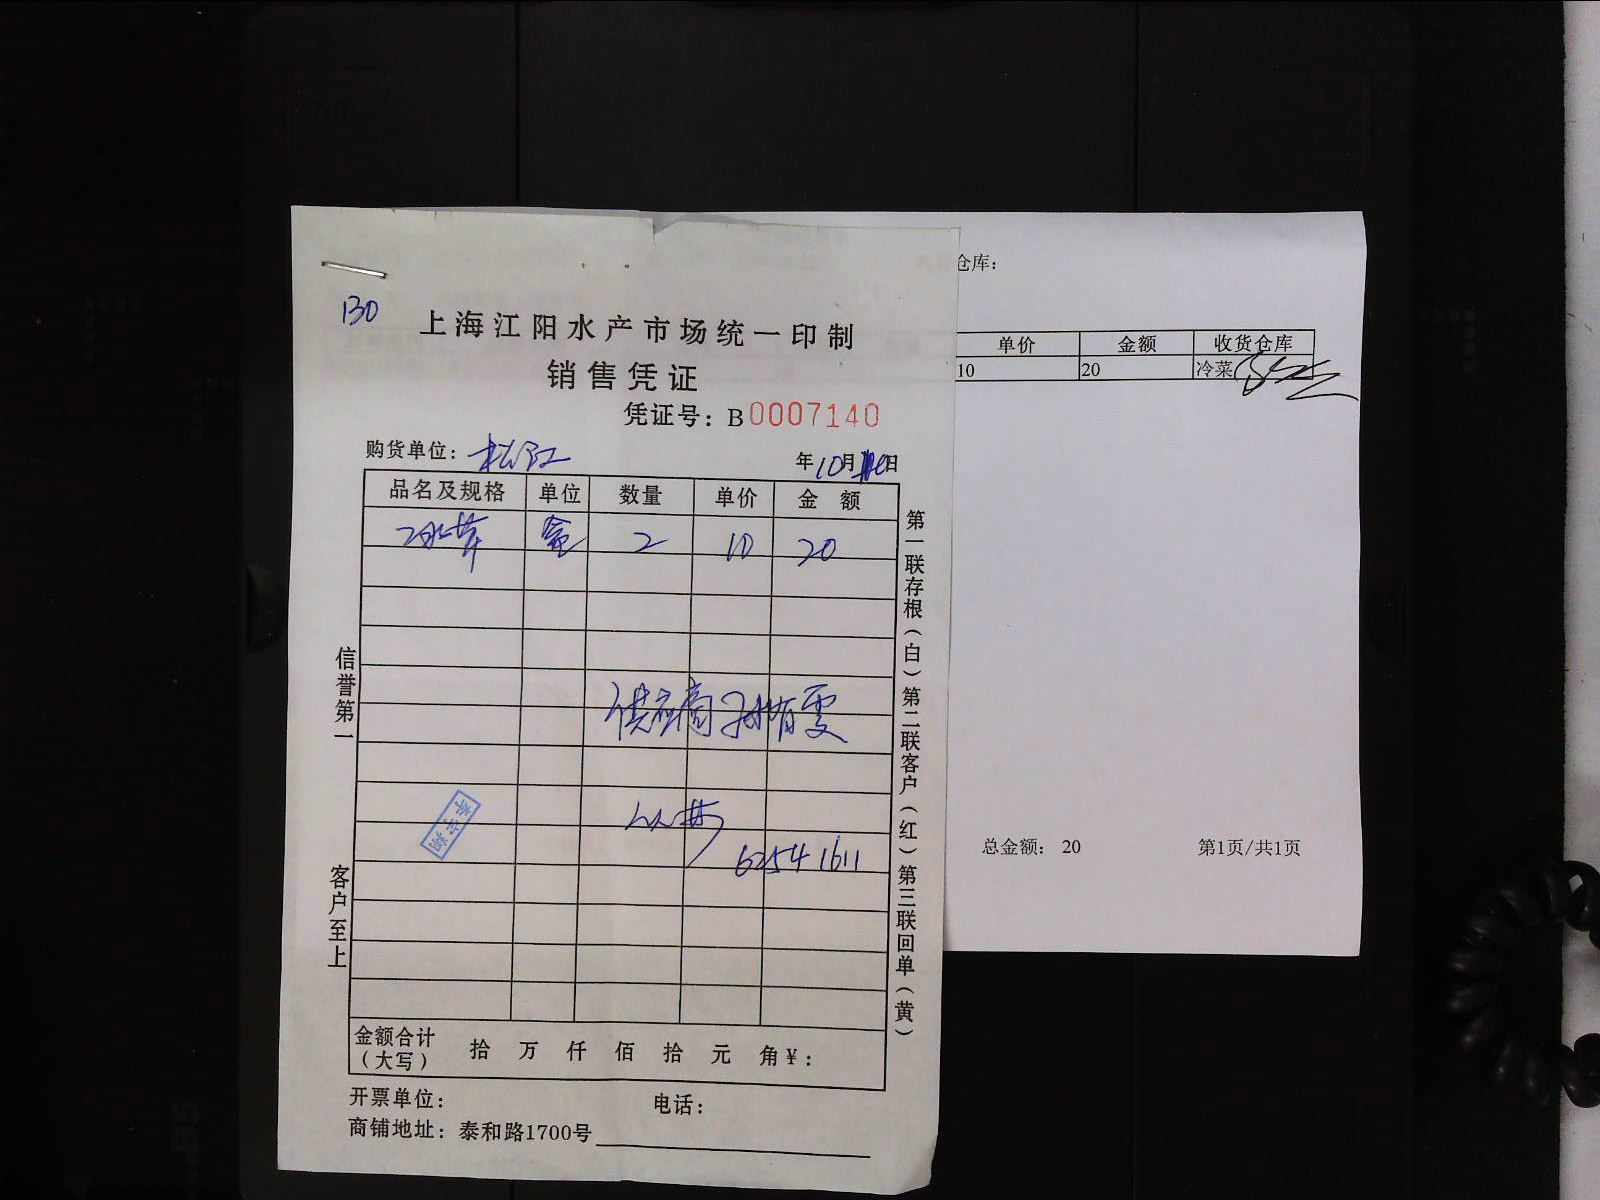 130
上海江阳水产市场统一印制
销售凭证
凭证号：B0007140
购货单位：松江
年10月 日
品名及规格 单位 数量 单价 金额
冰草 盒 2 10 20
供应商 孙有雯
62541611
金额合计（大写） 拾 万 仟 佰 拾 元 角￥：
开票单位： 电话：
商铺地址：泰和路1700号
信誉第一
客户至上
第一联存根（白）第二联客户（红）第三联回单（黄）
仓库：
单价 金额 收货仓库
10 20 冷菜
总金额： 20 第1页/共1页